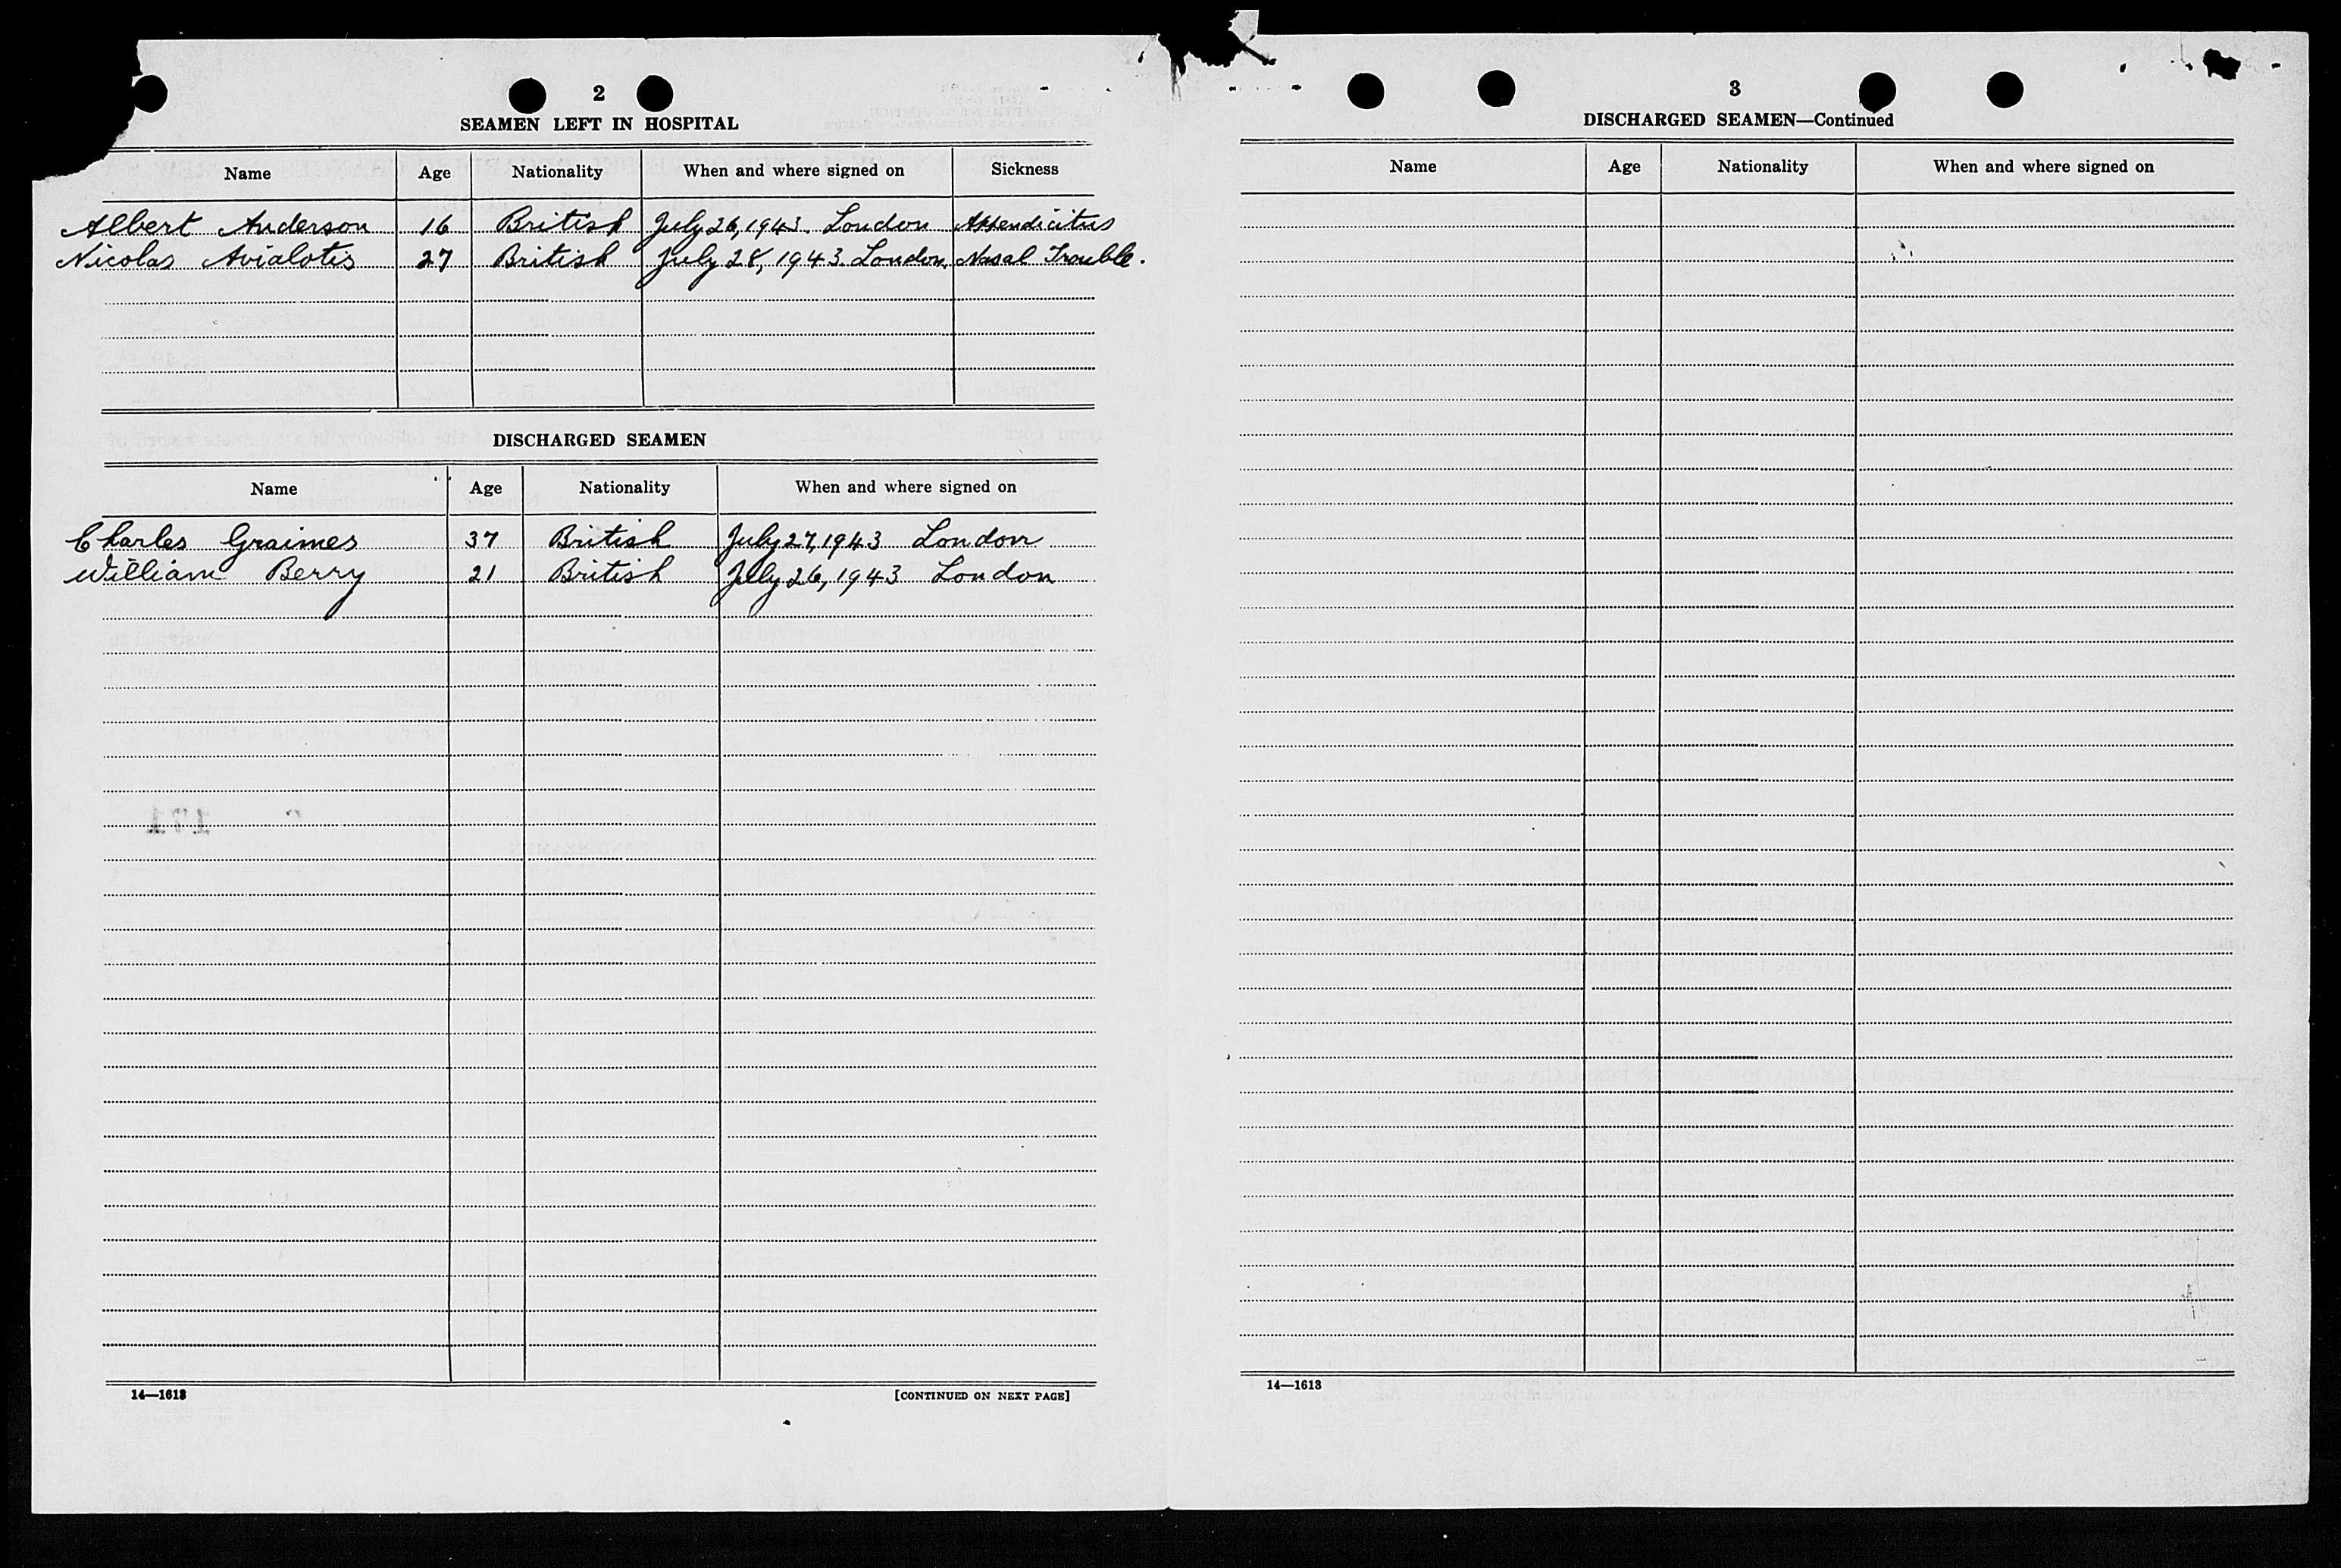 2
SEAMEN LEFT IN HOSPITAL
Name Age Nationality When and where signed on Sickness
Albert Anderson 16 British July 26, 1943. London Appendicitus
Nicolas Avialotis 27 British July 28, 1943. London. Nasal Trouble.
DISCHARGED SEAMEN
Name Age Nationality When and where signed on
Charles Graimes 37 British July 27, 1943 London
William Berry 21 British July 26, 1943 London
14—1613
[CONTINUED ON NEXT PAGE]
3
DISCHARGED SEAMEN—Continued
Name Age Nationality When and where signed on
14—1613